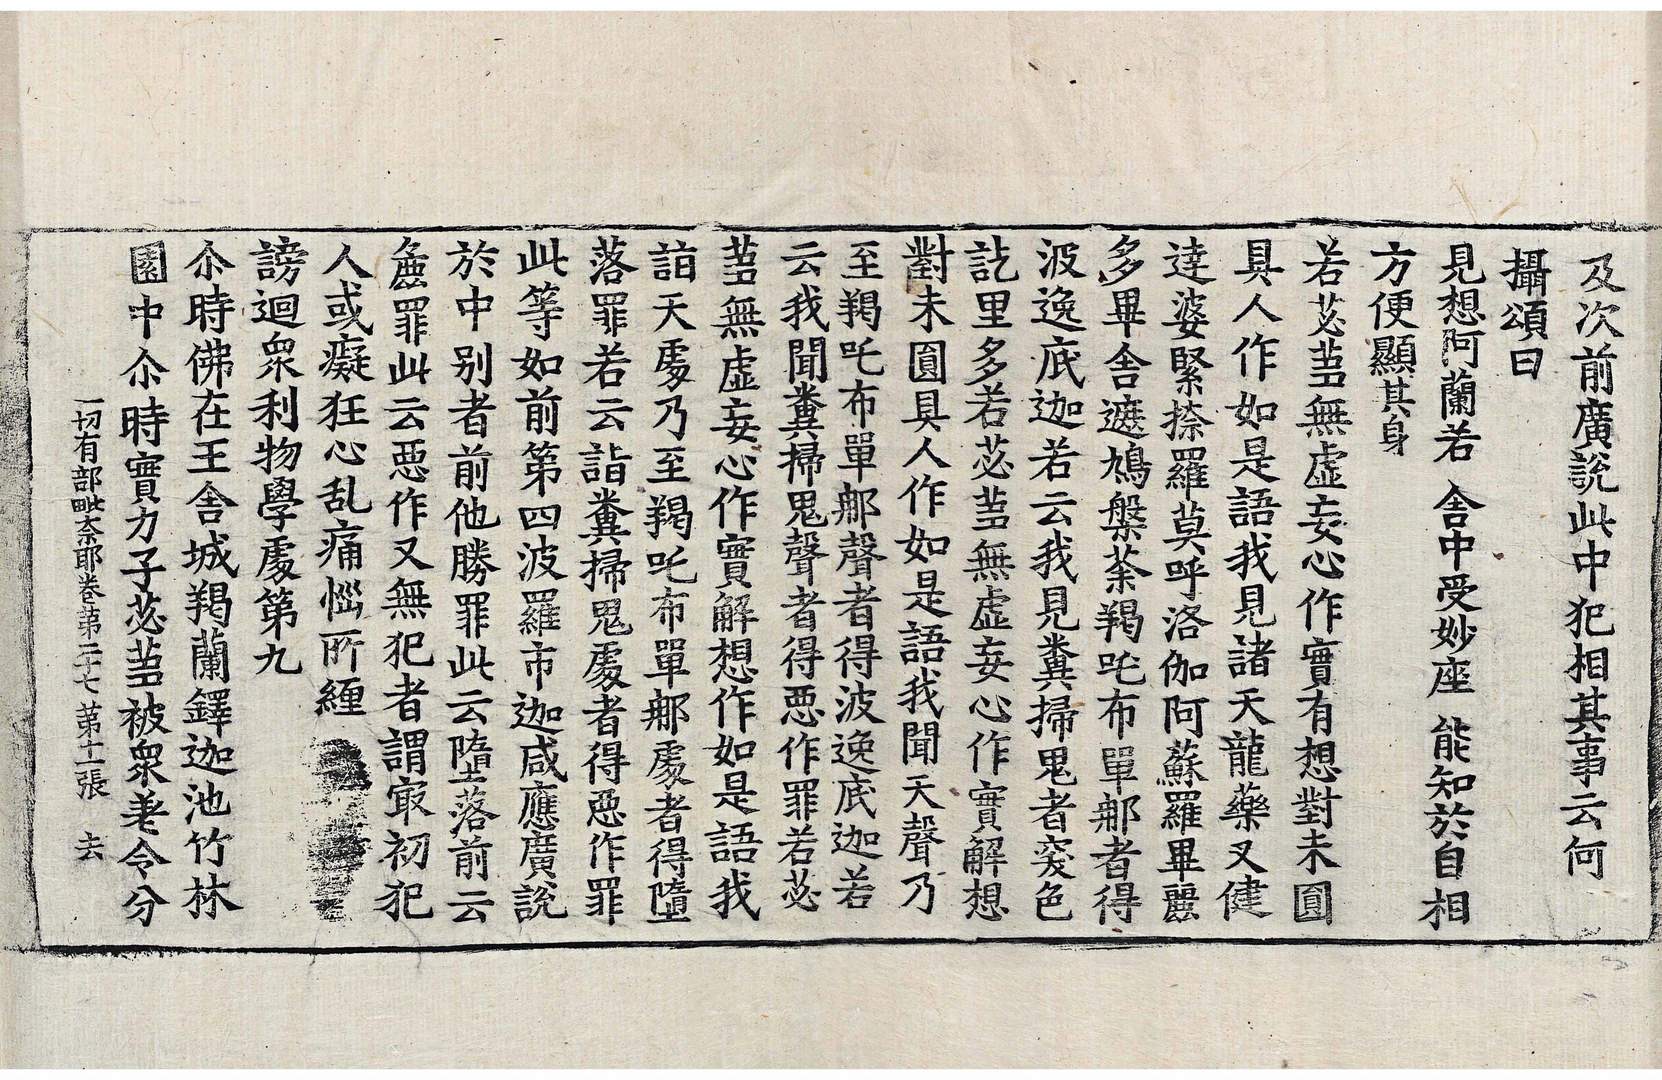 及次前廣說此中犯相其事云何
攝頌曰
見想阿蘭若　舍中受妙座　能知於自相
方便顯其身
若苾芻無虛妄心作實有想對未圓
具人作如是語我見諸天龍藥叉健
達婆緊捺羅莫呼洛伽阿蘇羅畢麗
多畢舍遮鳩槃荼羯吒布單那者得
波逸底迦若云我見糞掃鬼者突色
訖里多若苾芻無虛妄心作實解想
對未圓具人作如是語我聞天聲乃
至羯吒布單那聲者得波逸底迦若
云我聞糞掃鬼聲者得惡作罪若苾
芻無虛妄心作實解想作如是語我
詣天處乃至羯吒布單那處者得墮
落罪若云詣糞掃鬼處者得惡作罪
此等如前第四波羅市迦咸應廣說
於中別者前他勝罪此云墮落前云
麁罪此云惡作又無犯者謂㝡初犯
人或癡狂心乱痛惱所纏
謗迴衆利物學處第九
尒時佛在王舍城羯蘭鐸迦池竹林
園中尒時實力子苾芻被衆差令分
一切有部毗奈耶卷第三十七　第十一張　去